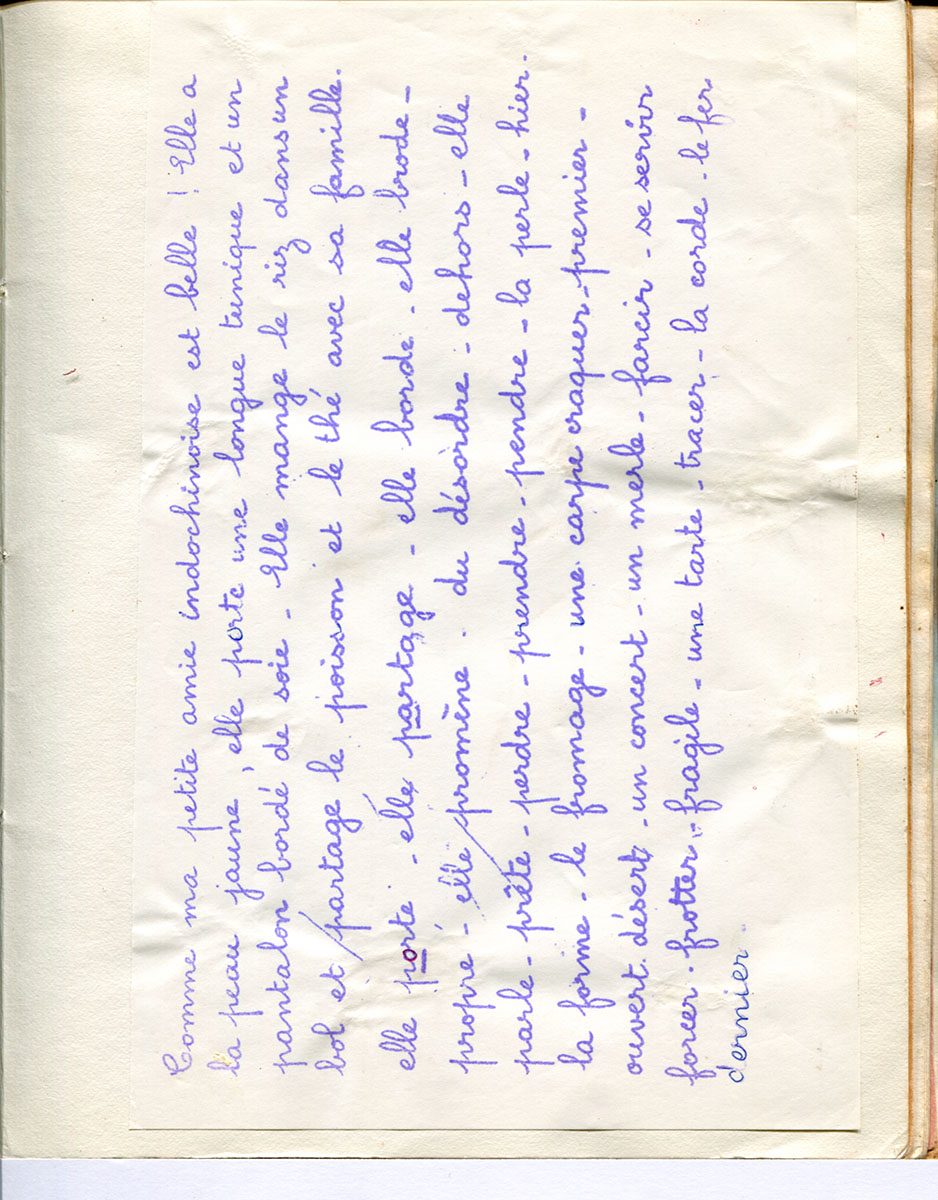 Comme ma petite amie indochinoise est belle ! Elle a
la peau jaune, elle porte une longue tunique et un
pantalon bordé de soie - Elle mange le riz dans un
bol et partage le poisson et le thé avec sa famille.
elle porte - elle partage - elle borde - elle brode -
propre - elle promène - du désordre - dehors - elle
parle - prête - perdre - prendre - pendre - la perle - hier -
la forme - le fromage - une carpe craquer - premier -
ouvert - désert - un concert - un merle - farcir - se servir
forcer - frotter - fragile - une tarte - tracer - la corde - le fer
dernier -